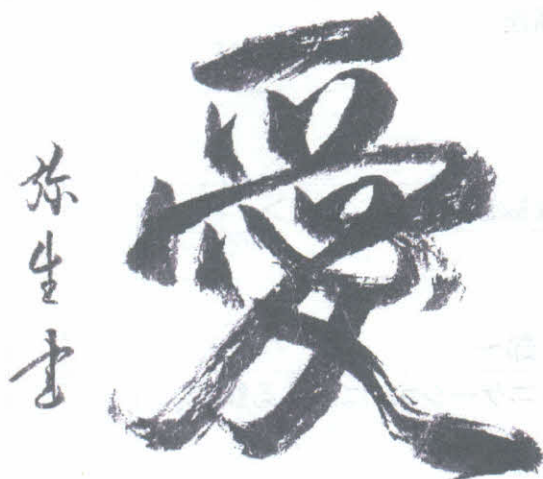 愛
弥生書